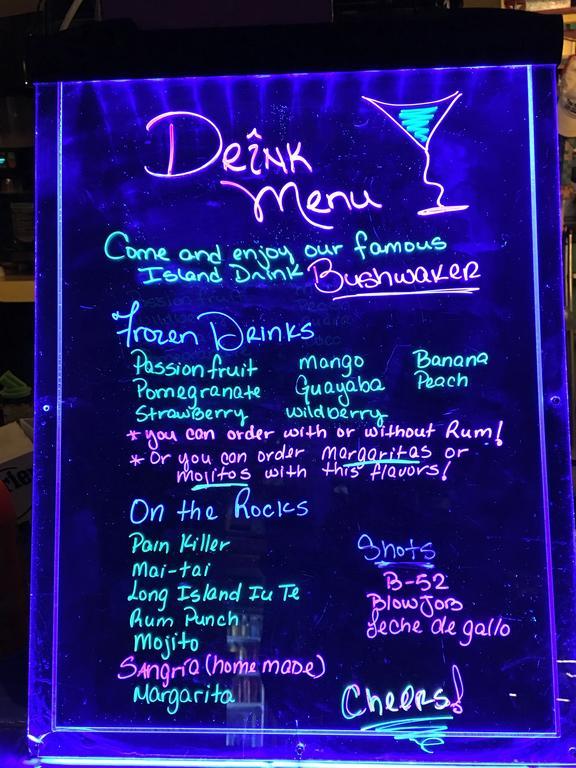 Drink
Menu
Come and enjoy our famous
Island Drink Bushwaker
Frozen Drinks
Passion fruit mango Banana
Pomegranate Guayaba Peach
Strawberry wildberry
* you can order with or without Rum!
* Or you can order margaritas or
mojitos with this flavors!
On the Rocks
Pain Killer
Mai-tai
Long Island Ice Te
Rum Punch
Mojito
Sangria (home made)
Margarita
Shots
B-52
Blow Job
Leche de gallo
Cheers!